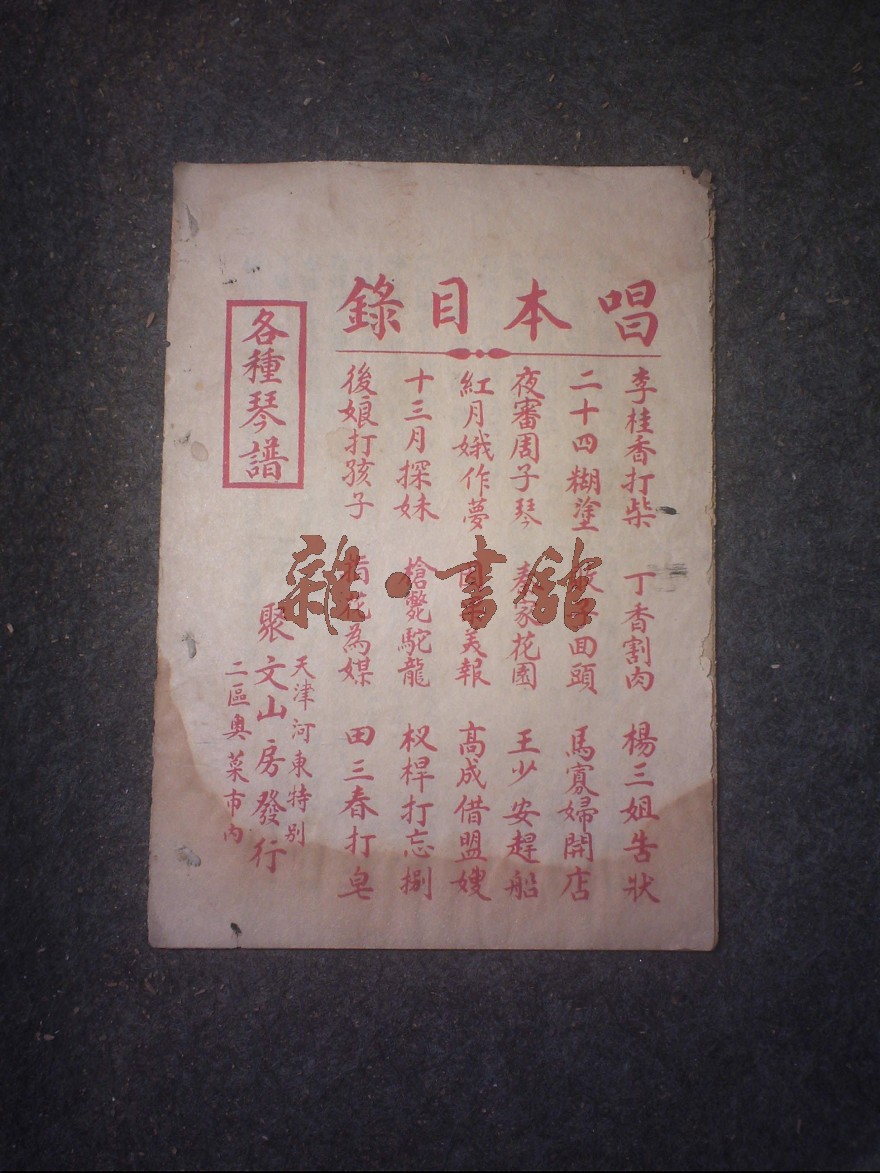 唱本目錄
李桂香打柴 丁香割肉 楊三姐告狀
二十四糊塗 回頭 馬寡婦開店
夜審周子琴 秦家花園 王少安趕船
紅月娥作夢 美報 高成借盟嫂
十三月探妹 槍斃駝龍 杈桿打忘捌
後娘打孩子 為媒 田三春打皂
各種琴譜
天津河東特別
聚文山房發行
二區奧菜市內
雜·書館